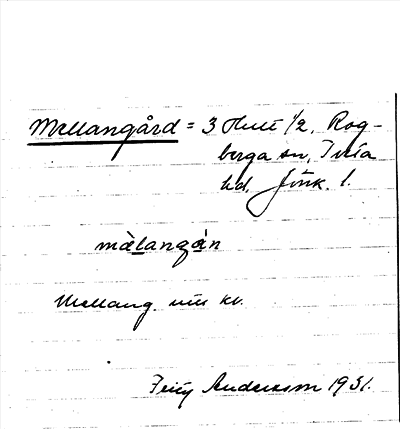 Mellangård = 3 Hult 1/2, Rog-
berga sn, Tveta
hd, Jönk. l.
mälangån
Mellang. kv.
Fritz Andersson 1931.